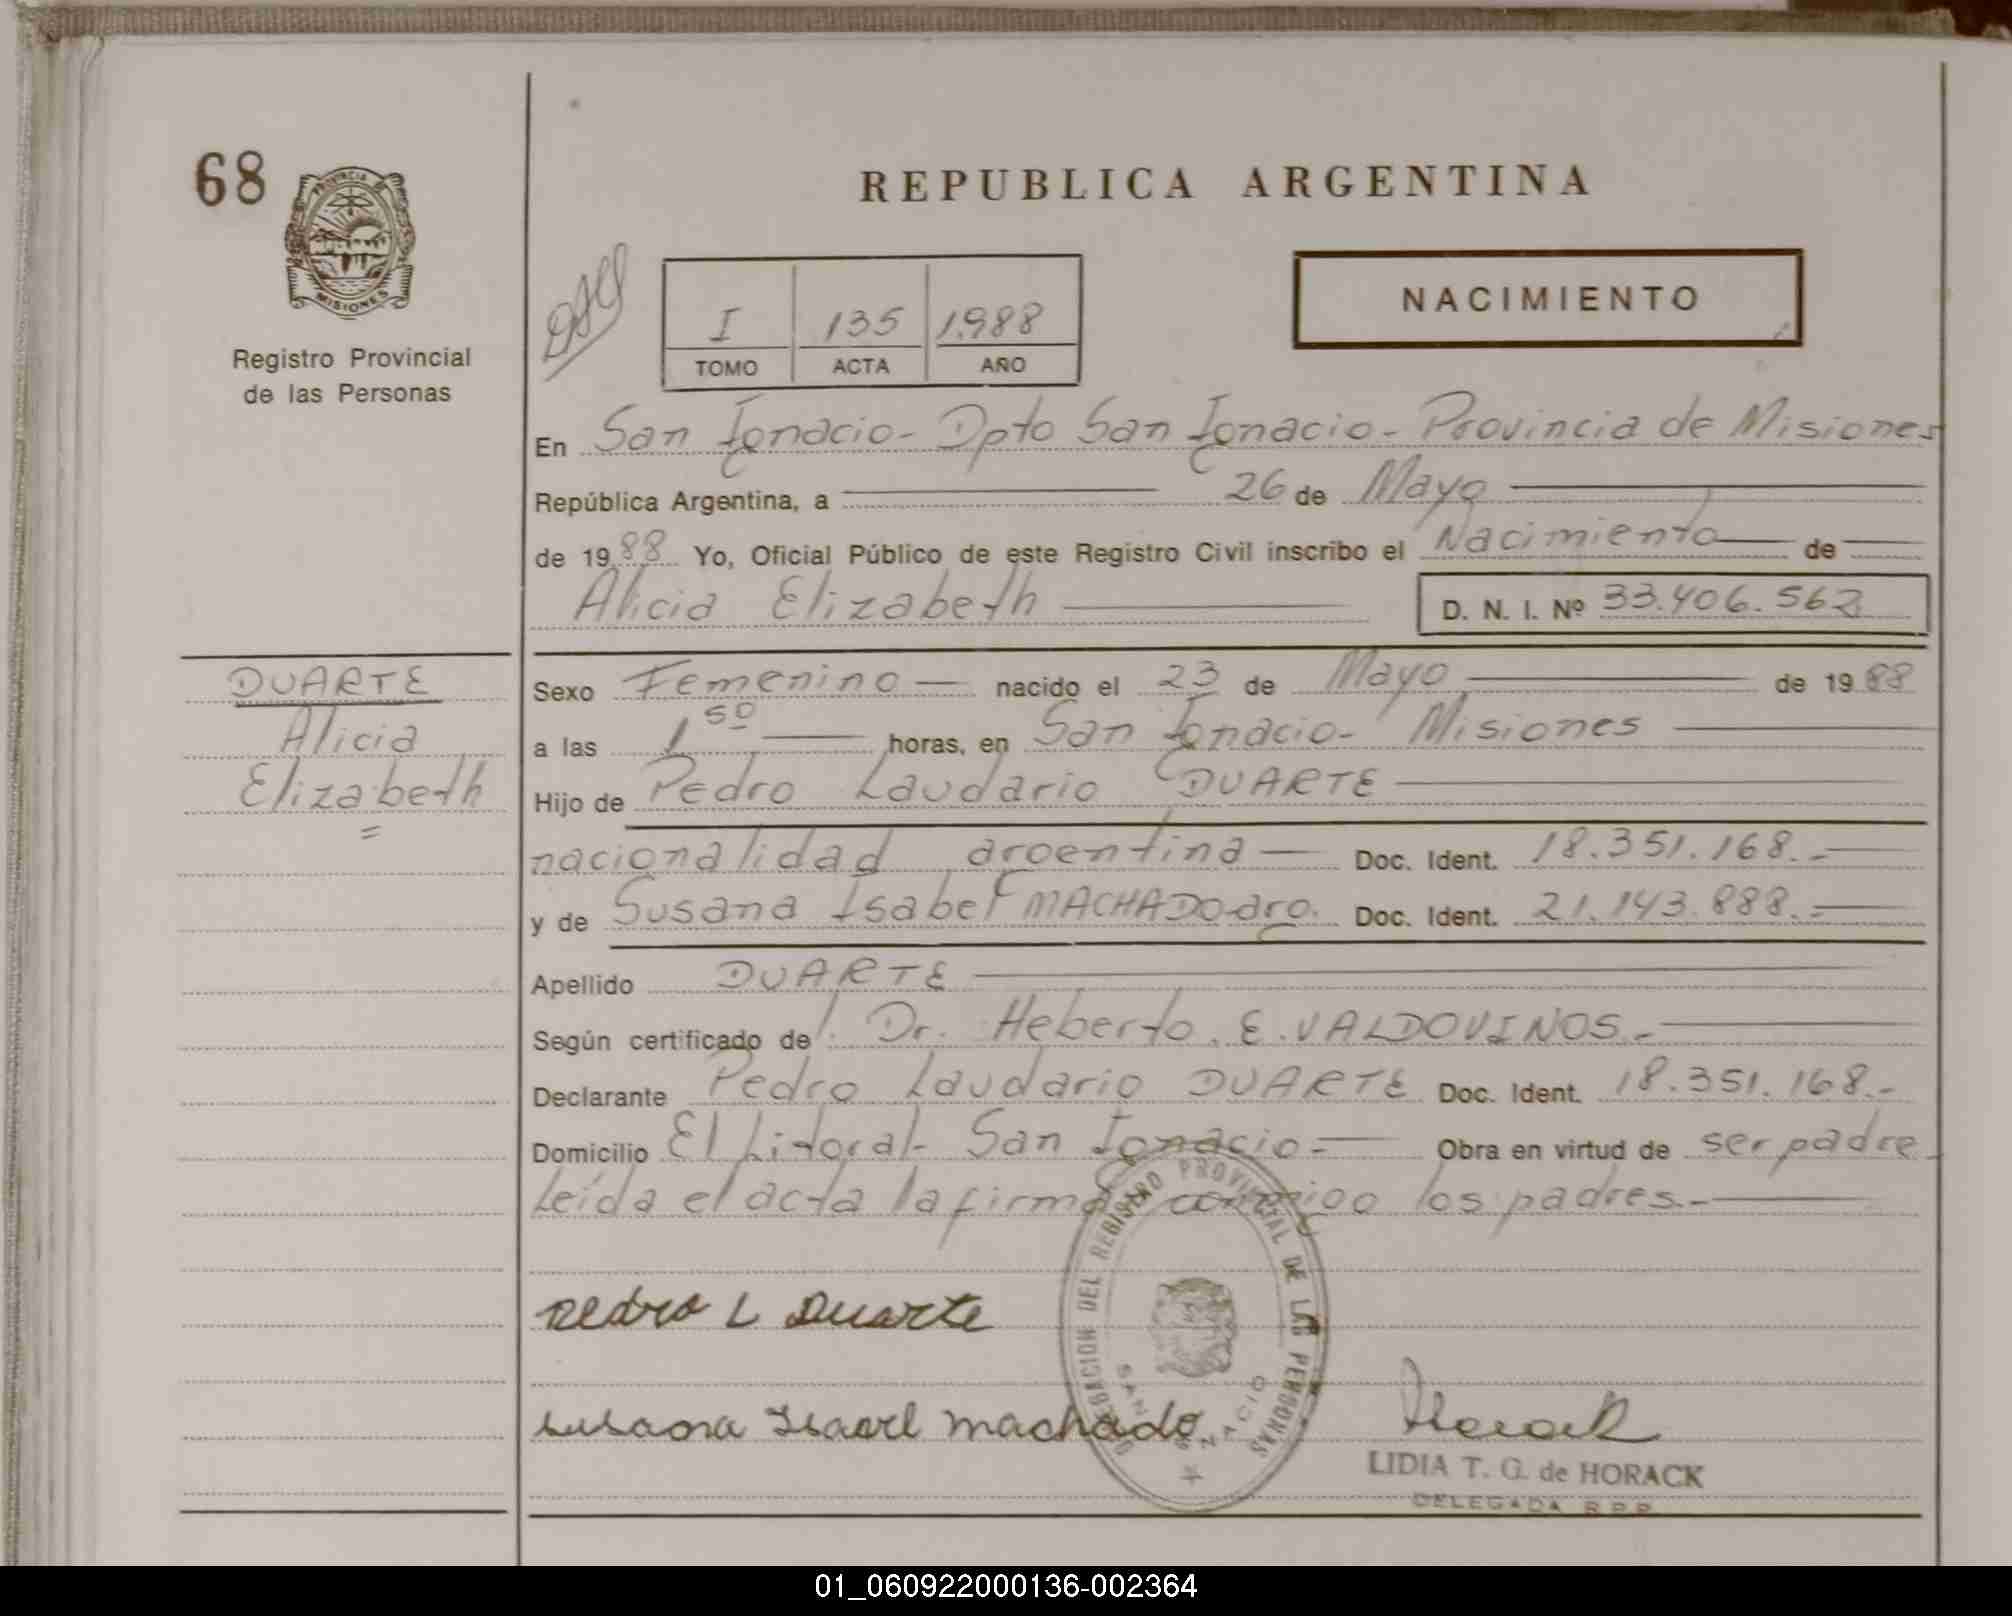 68
PROVINCIA DE
MISIONES
Registro Provincial
de las Personas
REPUBLICA ARGENTINA
I 135 1.988
TOMO ACTA AÑO
NACIMIENTO
En San Ignacio - Dpto San Ignacio - Provincia de Misiones
República Argentina, a 26 de Mayo
de 1988 Yo, Oficial Público de este Registro Civil inscribo el Nacimiento de
Alicia Elizabeth D. N. I. Nº 33.406.562
DUARTE
Alicia
Elizabeth
=
Sexo Femenino nacido el 23 de Mayo de 1988
a las 1 50 horas, en San Ignacio - Misiones
Hijo de Pedro Laudario DUARTE
nacionalidad argentina Doc. Ident. 18.351.168.-
y de Susana Isabel MACHADO-arg. Doc. Ident. 21.143.888.-
Apellido DUARTE
Según certificado de l. Dr. Heberto E. VALDOVINOS.-
Declarante Pedro Laudario DUARTE Doc. Ident. 18.351.168.-
Domicilio El Litoral- San Ignacio.- Obra en virtud de ser padre.
Leída el acta la firman conmigo los padres.-
Pedro L Duarte
Susana Isabel Machado
DELEGACION DEL REGISTRO PROVINCIAL DE LAS PERSONAS
SAN IGNACIO
Horack
LIDIA T. G. de HORACK
DELEGADA R.P.P.
01_060922000136-002364